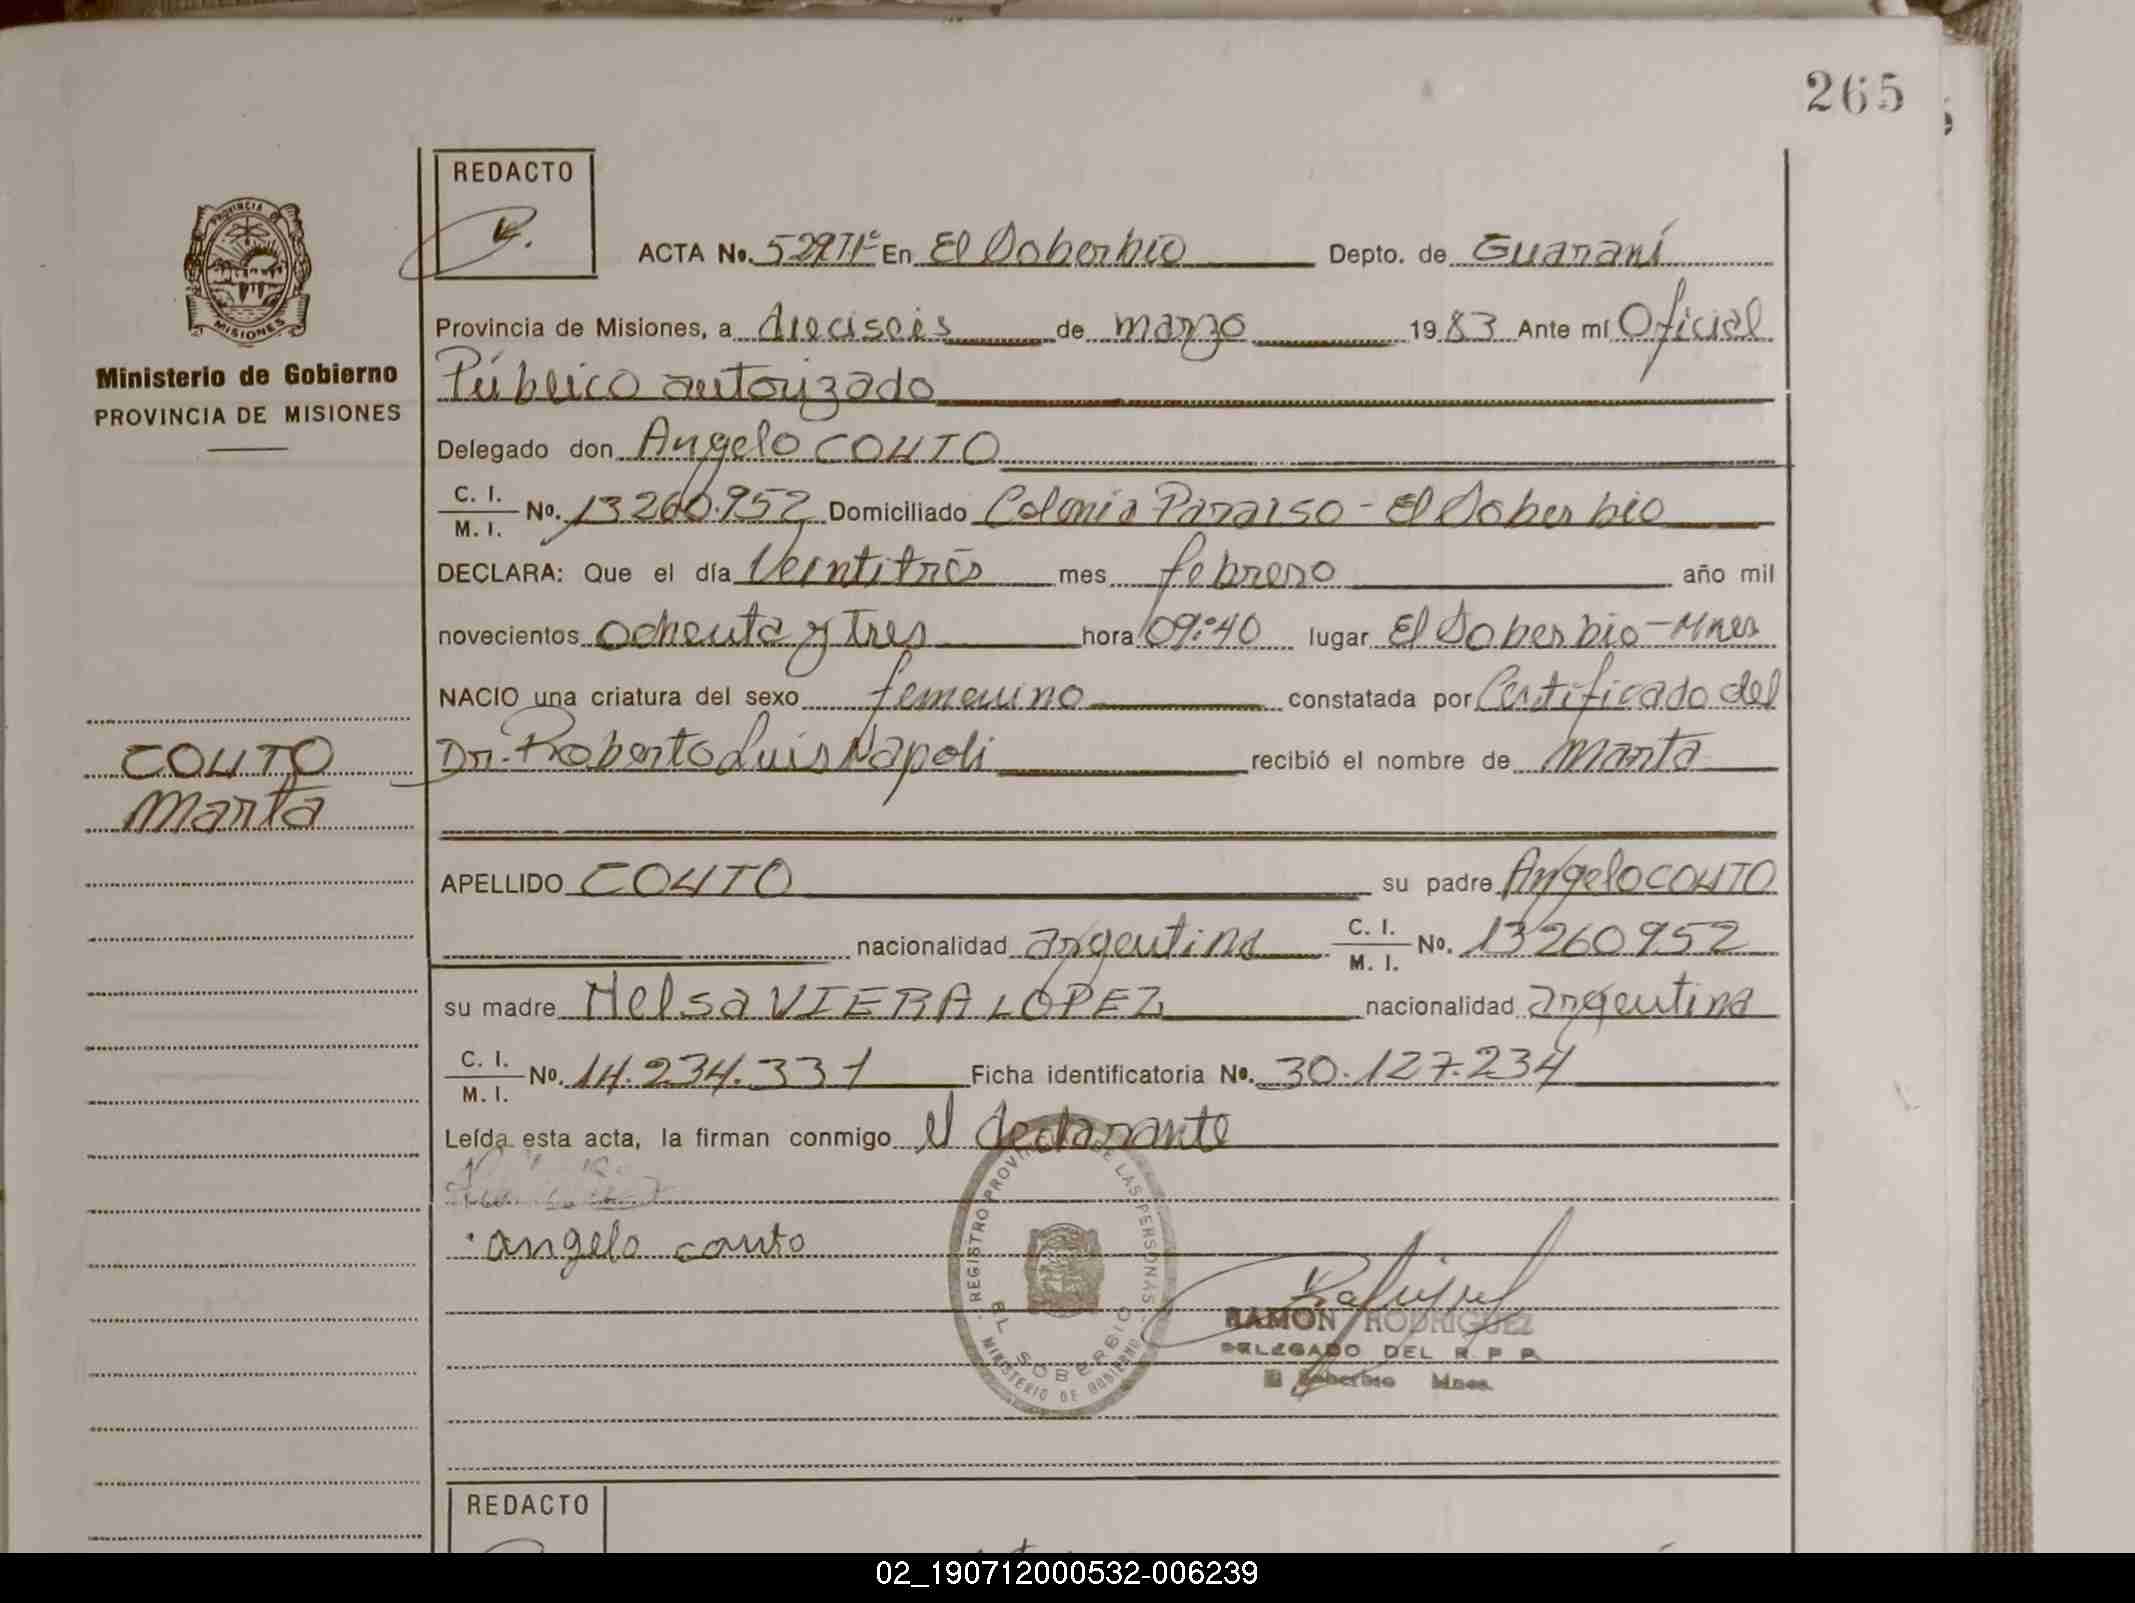 265
REDACTO
ACTA No. 529T1º En El Soberbio Depto. de Guaraní
PROVINCIA DE MISIONES
Provincia de Misiones, a dieciseis de marzo 1983 Ante mí Oficial
Ministerio de Gobierno
PROVINCIA DE MISIONES
Público autorizado
Delegado don Angelo COUTO
C. I. / M. I. No. 13260.952 Domiciliado Colonia Paraiso - El Soberbio
DECLARA: Que el día Veintitrés mes febrero año mil
novecientos ochenta y Tres hora 09:40 lugar El Soberbio - Mnes
NACIO una criatura del sexo femenino constatada por Certificado del
COUTO
Marta
Dr. Roberto Luis Napoli recibió el nombre de Marta
APELLIDO COUTO su padre Angelo COUTO
nacionalidad argentina C. I. / M. I. No. 13260952
su madre Nelsa VIERA LOPEZ nacionalidad argentina
C. I. / M. I. No. 14.234.331 Ficha identificatoria No. 30.127.234
Leída esta acta, la firman conmigo el declarante
angelo couto
REGISTRO PROVINCIAL DE LAS PERSONAS
EL SOBERBIO
MINISTERIO DE GOBIERNO
RAMON RODRIGUEZ
DELEGADO DEL R P P
El Soberbio Mnes.
REDACTO
02_190712000532-006239